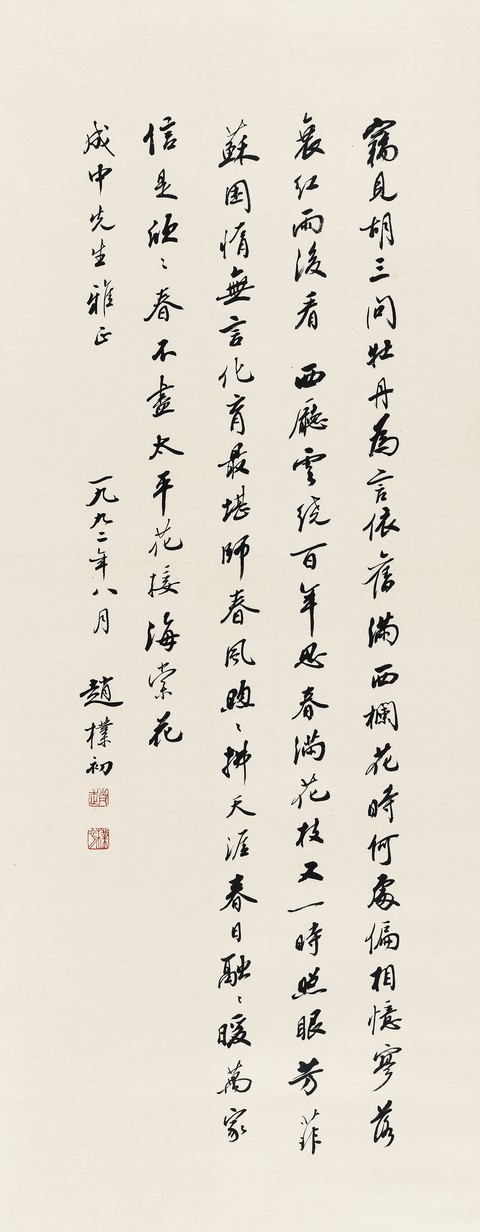 竊見胡三問牡丹為言依舊滿西欄花時何處偏相憶寥落
衰紅雨後看 西廳雲繞百年思春滿花枝又一時照眼芳菲
蘇困惰無言化育最堪師春風煦々拂天涯春日融々暖萬家
信是欣々春不盡太平花接海棠花
成中先生雅正 一九九二年八月 趙樸初